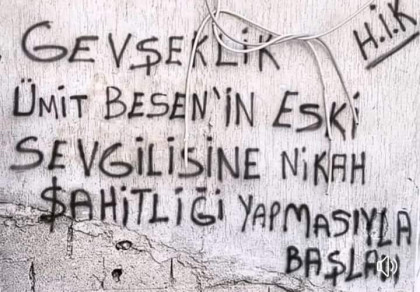 GEVŞEKLİK
H.İ.K
ÜMİT BESEN'İN ESKİ
SEVGİLİSİNE NİKAH
ŞAHİTLİĞİ YAPMASIYLA
BAŞLAR